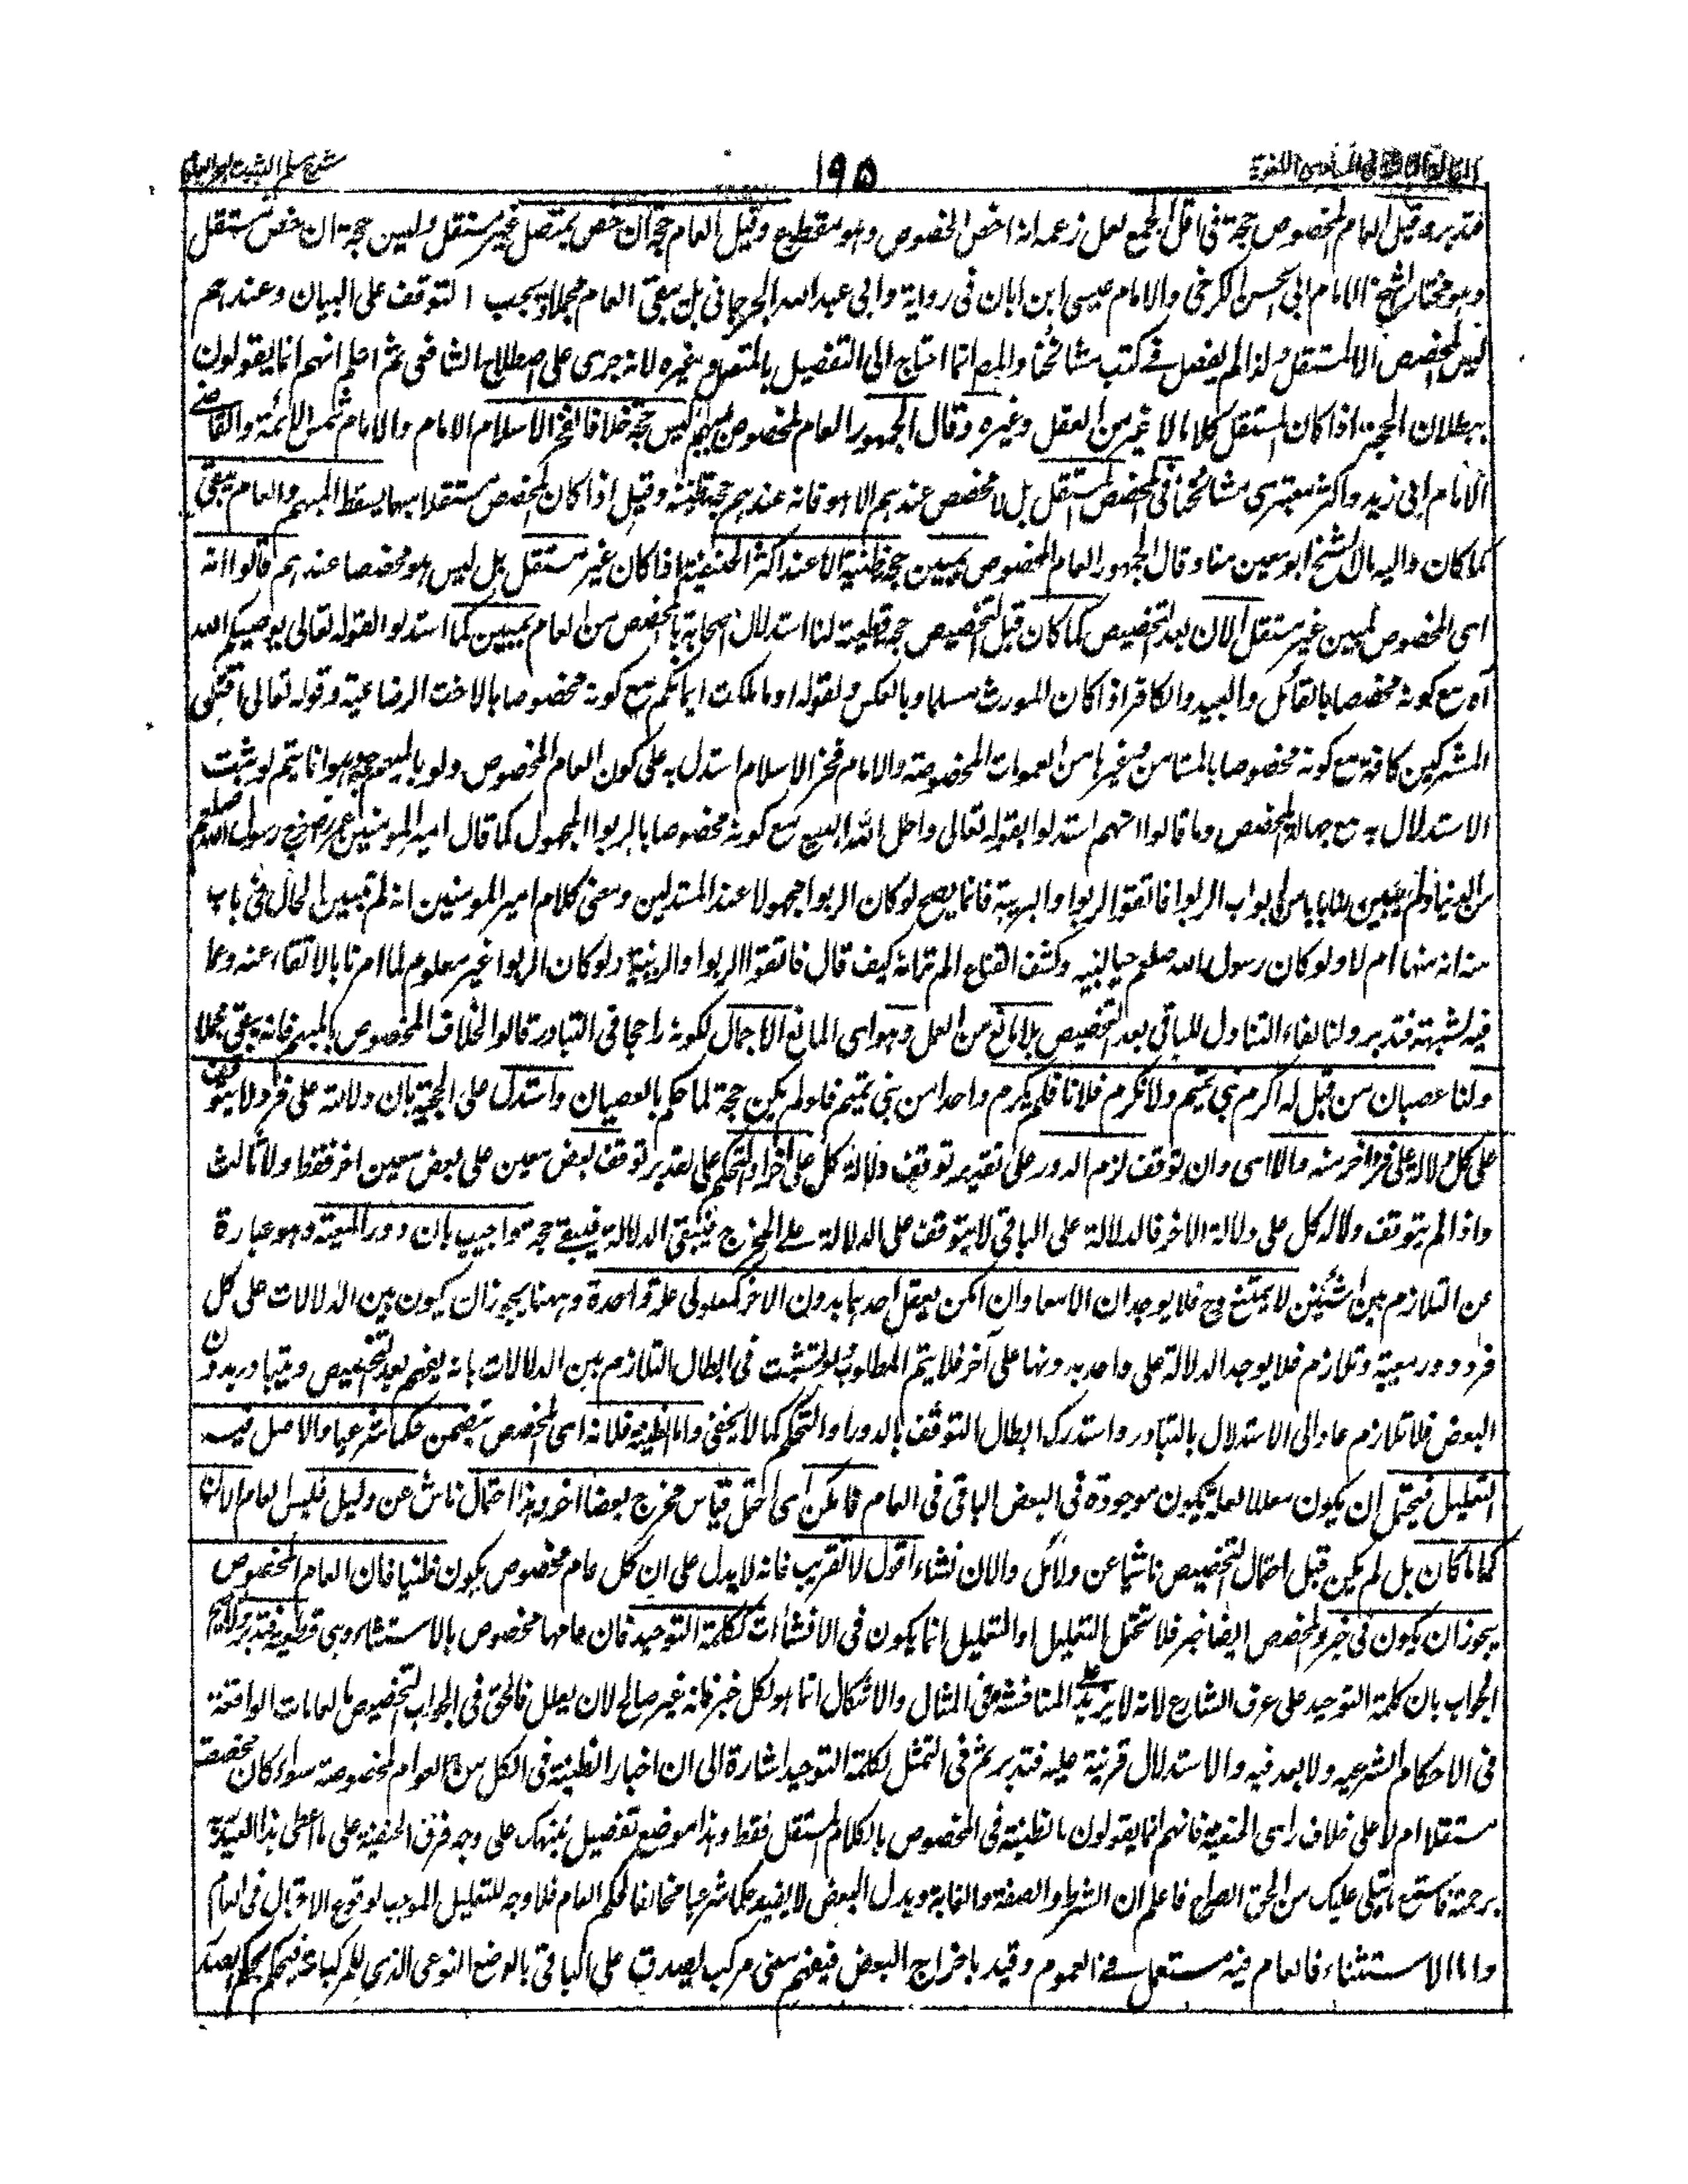 ١٩٥
فتدبره وقيل العام المخصوص حجة في اقل الجمع لعل زعمه انه اخص الخصوص وهو مقطوع وقيل العام حجة ان خص بمتصل غير مستقل وليس حجة ان خص بمستقل
وهو مختار الشيخ الامام ابي الحسن الكرخي والامام عيسى ابن ابان في رواية وابي عبد الله الجرجاني بل يبقى العام مجملا ويجب التوقف على البيان وعندهم
ليس المخصص الا المستقل ولذا لم يفصل في كتب مشائخنا والمصـ انما احتاج الى التفصيل بالمتصل وغيره لانه جرى على اصطلاح الشافعي ثم اعلم انهم انما يقولون
ببطلان الحجية اذا كان المستقل كلاما لا غير من العقل وغيره وقال الجمهور العام المخصوص بمبهم ليس حجة خلافا لفخر الاسلام الامام والامام شمس الائمة والقاضي
الامام ابي زيد واكثر معتبري مشائخنا في المخصص المستقل بل لا مخصص عندهم الا هو فانه عندهم حجة ظنية وقيل اذا كان المخصص مستقلا مبهما يسقط المبهم والعام يبقى
كما كان واليه مال الشيخ ابو معين منا وقال الجمهور العام المخصوص بمبين حجة ظنية الا عند اكثر الحنفية اذا كان غير مستقل بل ليس هو مخصصا عندهم قالوا انه
اى المخصوص بمبين غير مستقل الان بعد التخصيص كما كان قبل التخصيص حجة قطعية لنا استدلال الصحابة بالمخصص من العام بمبين كما استدلوا لقوله تعالى يوصيكم الله
آه مع كونه مخصصا بالقاتل والعبيد والكافر اذا كان المورث مسلما وبالعكس ولقوله او ما ملكت ايمانكم مع كونه مخصوصا بالاخت الرضاعية وقوله تعالى اقتلوا
المشركين كافة مع كونه مخصوصا بالمستامن وغيرها من العمومات المخصوصة والامام فخر الاسلام استدل به على كون العام المخصوص ولو بالمبهم حجة وهو انما يتم لو ثبت
الاستدلال به مع جهالة المخصص وما قالوا انهم استدلوا بقوله تعالى واحل الله البيع مع كونه مخصوصا بالربوا المجهول كما قال امير المومنين عمر رضـ خرج رسول الله صلعم
من الدنيا ولم يبين لنا بابا من ابواب الربوا فاتقوا الربوا والريبة فانما يصح لو كان الربوا مجهولا عند المستدلين ومعنى كلام امير المومنين انه لم يتبين الحال في باب
منه انه منها ام لا ولو كان رسول الله صلعم حيا لنبيه وكشف القناع الم تر انه كيف قال فاتقوا الربوا والريبة ولو كان الربوا غير معلوم لما امرنا بالاتقاء عنه وعما
فيه لشبهته فتدبر ولنا بقاء التناول للباقي بعد التخصيص بلا مانع من العمل وهو اى المانع الاجمال لكونه راجحا في التبادر قالوا الخلاف المخصوص بالمبهم فانه يبقى مجملا
ولنا عصيان من قيل له اكرم بني تميم ولا تكرم فلانا فلم يكرم واحدا من بني تميم فلو لم يكن حجة لما حكم بالعصيان واستدل على الحجية بان دلالته على فرد لا يتوقف
على كل دلالة على فرد اخر منه والا اى وان توقف لزم الدور على تقدير توقف دلالة كل على اخر او التحكم على تقدير توقف بعض معين على بعض معين اخر فقط ولا ثالث
واذا لم يتوقف دلالة كل على دلالة الاخر فالدلالة على الباقي لا يتوقف على الدلالة على المخرج فتبقى الدلالة فيبقى حجة واجيب بان دور المعية وهو عبارة
عن التلازم بين الشيئين لا يمتنع وح فلا يوجدان الا معا وان امكن تعقل احدهما بدون الاخر كمعلولي علة واحدة وههنا يجوز ان يكون بين الدلالات على كل
فرد دور معية وتلازم فلا يوجد الدلالة على واحد بدونها على آخر فلا يتم المطلوب ولو تشبث في ابطال التلازم بين الدلالات بانه يفهم بعد التخصيص ويتبادر بدون
البعض فلا تلازم عاد الى الاستدلال بالتبادر واستدرك ابطال التوقف بالدور او التحكم كما لا يخفى واما الظنية فلانه اى المخصص يتضمن حكما شرعيا والاصل فيه
التعليل فيحتمل ان يكون معللا بعلة يكون موجودة في البعض الباقي في العام فامكن اى احتمل قياس مخرج بعضا اخر وهذا احتمال ناش عن دليل فليس العام الان
كما كان بل لم يكن قبل احتمال التخصيص ناشيا عن دلائل والان نشاء اقول لا تقريب فانه لا يدل على ان كل عام مخصوص يكون ظنيا فان العام المخصوص
يجوز ان يكون في خبر والمخصص ايضا خبر فلا تحتمل التعليل او التعليل انما يكون في الانشاآت ككلمة التوحيد فان عامها مخصوص بالاستثناء وهى قطعية فتدبر
الجواب بان كلمة التوحيد على عرف الشارع لانه لا يزيد على المناقشة في المثال والاشكال انما هو لكل خبر فانه غير صالح لان يعلل فالحق في الجواب التخصيص بالعامات الواقعة
في الاحكام الشرعيه ولا بعد فيه والاستدلال قرينة عليه فتدبر ثم في التمثل لكلمة التوحيد اشارة الى ان اختار الظنية في الكل من العوام المخصوصة سواء كان مخصصه
مستقلا ام لا على خلاف راى الحنفية فانهم انما يقولون بالظنية في المخصوص بالكلام المستقل فقط وهذا موضع تفصيل ينبهك على وجه فرق الحنفية على ما اعطى هذا العبد
برحمته فاستمع ما يتلى عليك من الحق الصراح فاعلم ان الشرط والصفة والغاية وبدل البعض لا يفيد حكما شرعيا مخالفا لحكم العام فلا وجه للتعليل الموجب لوقوع الاحتمال في العام
واما الاستثناء فالعام فيه مستعمل في العموم وقيد باخراج البعض فيفهم معنى مركب يصدق على الباقي بالوضع النوعي الذي للمركبات